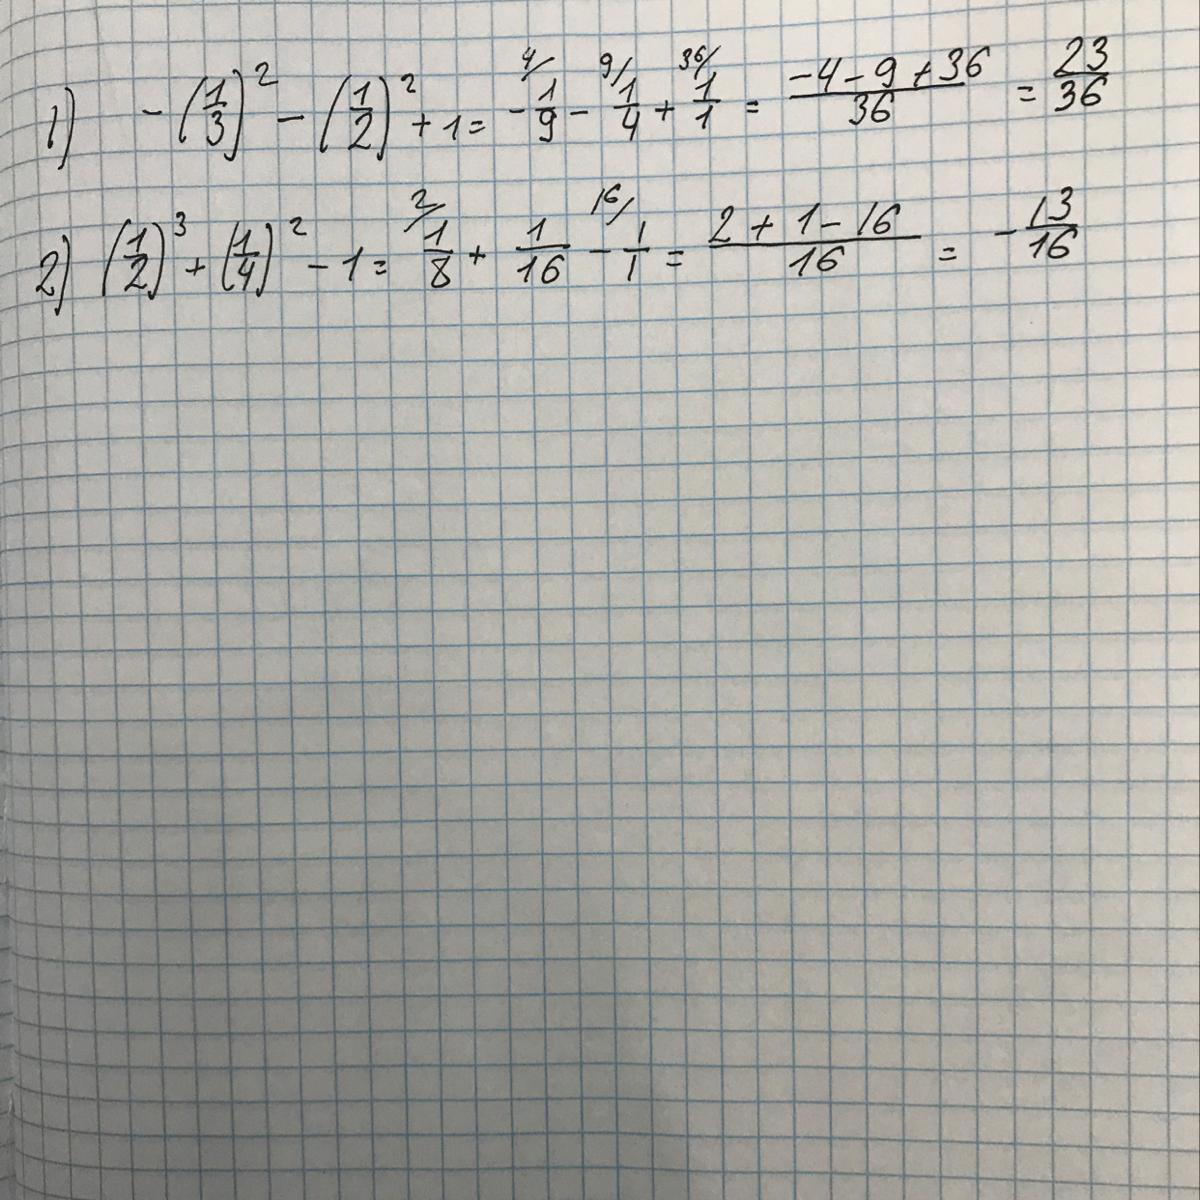 1) -(1/3)² - (1/2)² + 1 = - ⁴/1/9 - ⁹/1/4 + ³⁶/1/1 = (-4-9+36)/36 = 23/36
2) (1/2)³ + (1/4)² - 1 = ²/1/8 + 1/16 - ¹⁶/1/1 = (2+1-16)/16 = -13/16